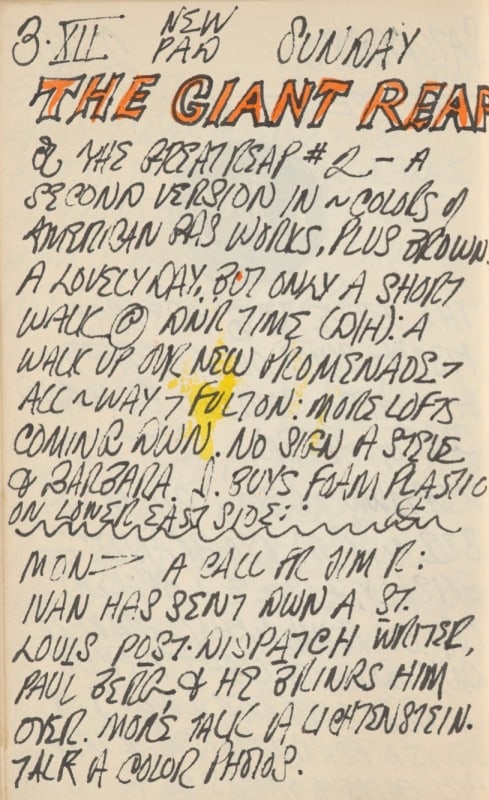 3·XII NEW PAD SUNDAY
THE GIANT REAP
& THE GREAT REAP #2 – A
SECOND VERSION IN ~ COLORS of
AMERICAN GAS WORKS, PLUS BROWN.
A LOVELY DAY, BUT ONLY A SHORT
WALK @ DNR TIME (D/H): A
WALK UP OUR NEW PROMENADE >
ALL ~ WAY > FULTON: MORE LOFTS
COMING DWN. NO SIGN A STEVE
& BARBARA. D. BUYS FOAM PLASTIC
ON LOWER EAST SIDE:
MON– A CALL FR JIM R:
IVAN HAS SENT DWN A ST.
LOUIS POST-DISPATCH WRITER,
PAUL BERG & HE BRINGS HIM
OVER. MORE TALK A LICHTENSTEIN.
TALK A COLOR PHOTOS.